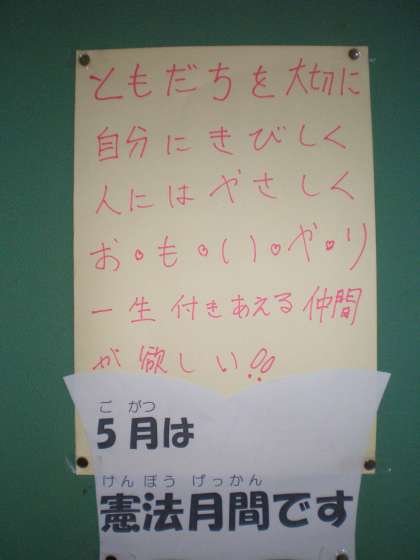 ともだちを大切に
自分にきびしく
人にはやさしく
お・も・い・や・り
一生付きあえる仲間
が欲しい!!
ご がつ
5月は
けんぽう げっかん
憲法月間です